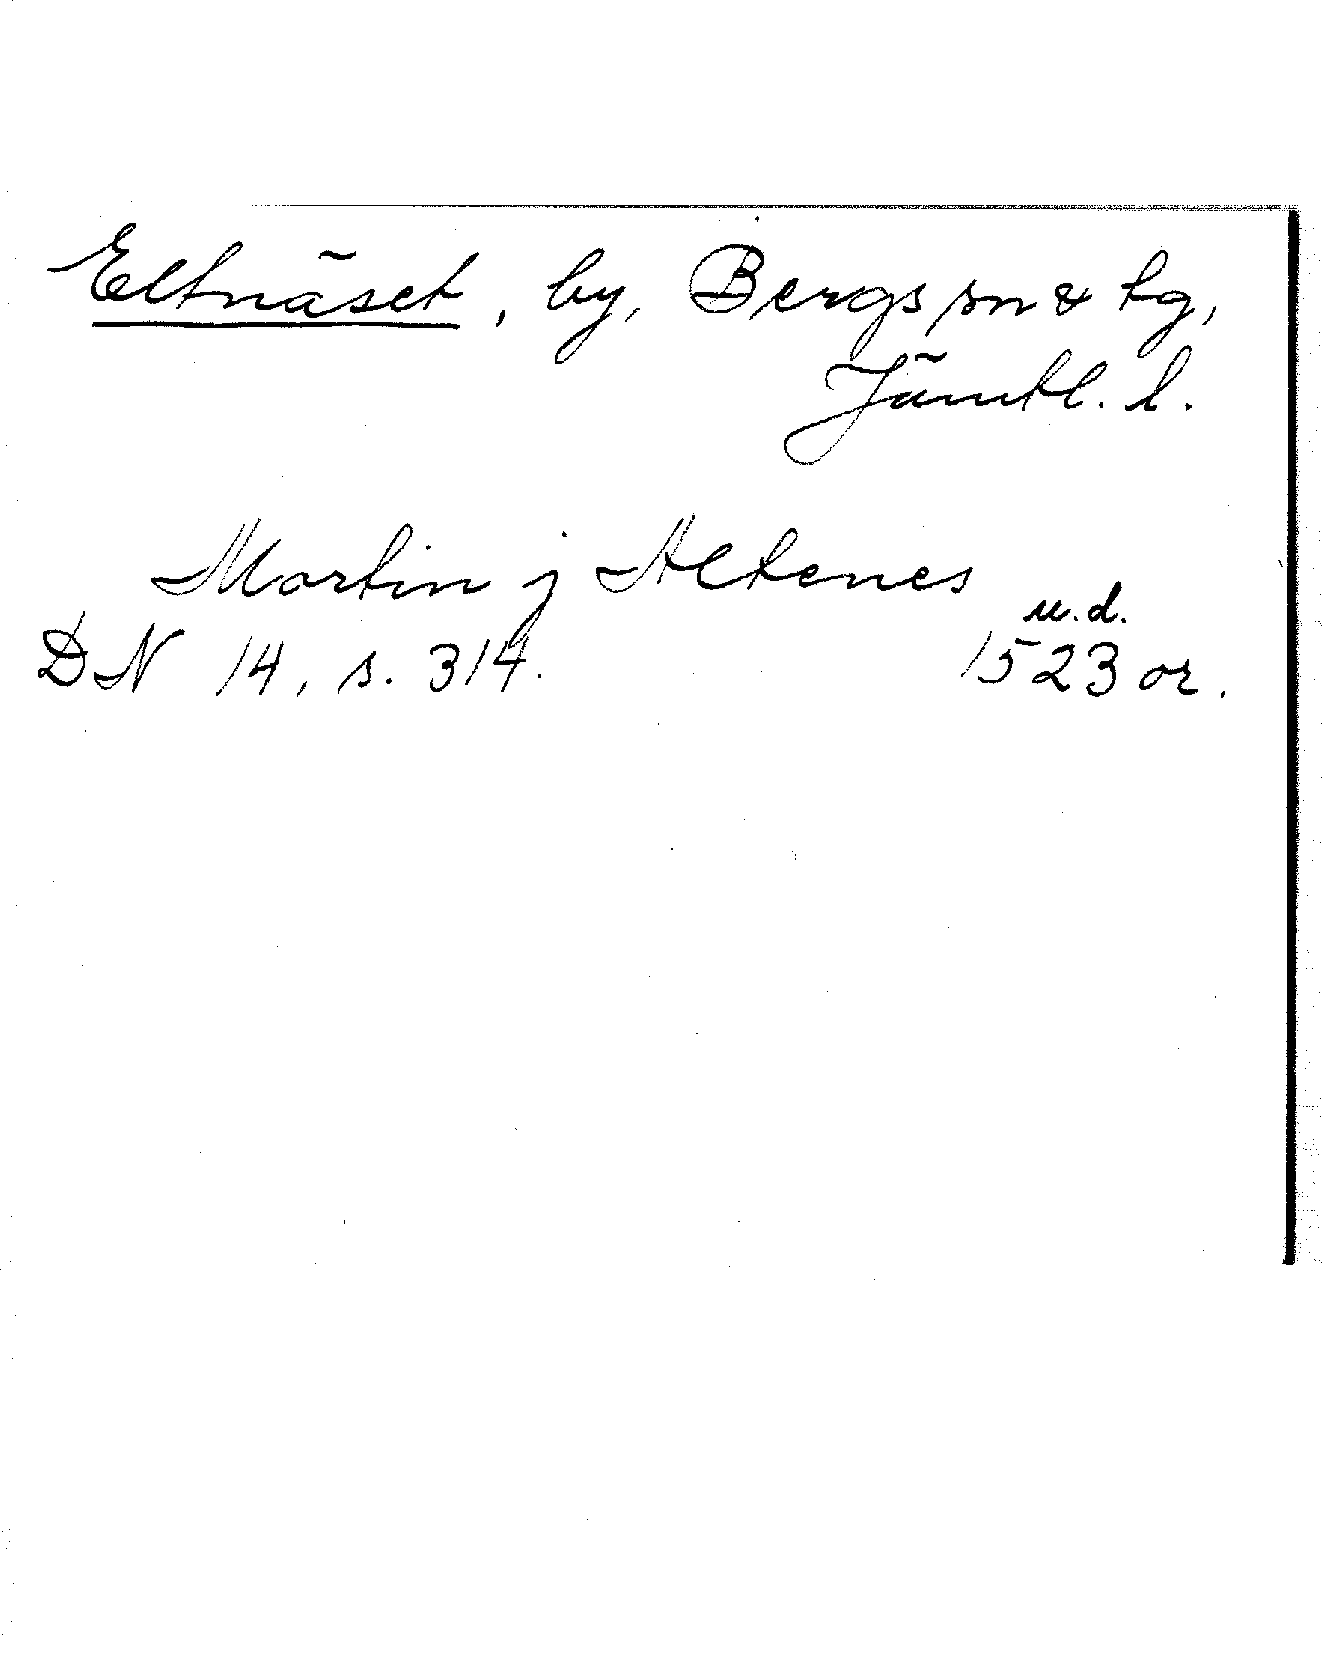 Eltnäset, by, Bergs sn & tg,
Jämtl. l.
Mortin j Altenes
u.d.
DN 14, s. 314. 1523 or.